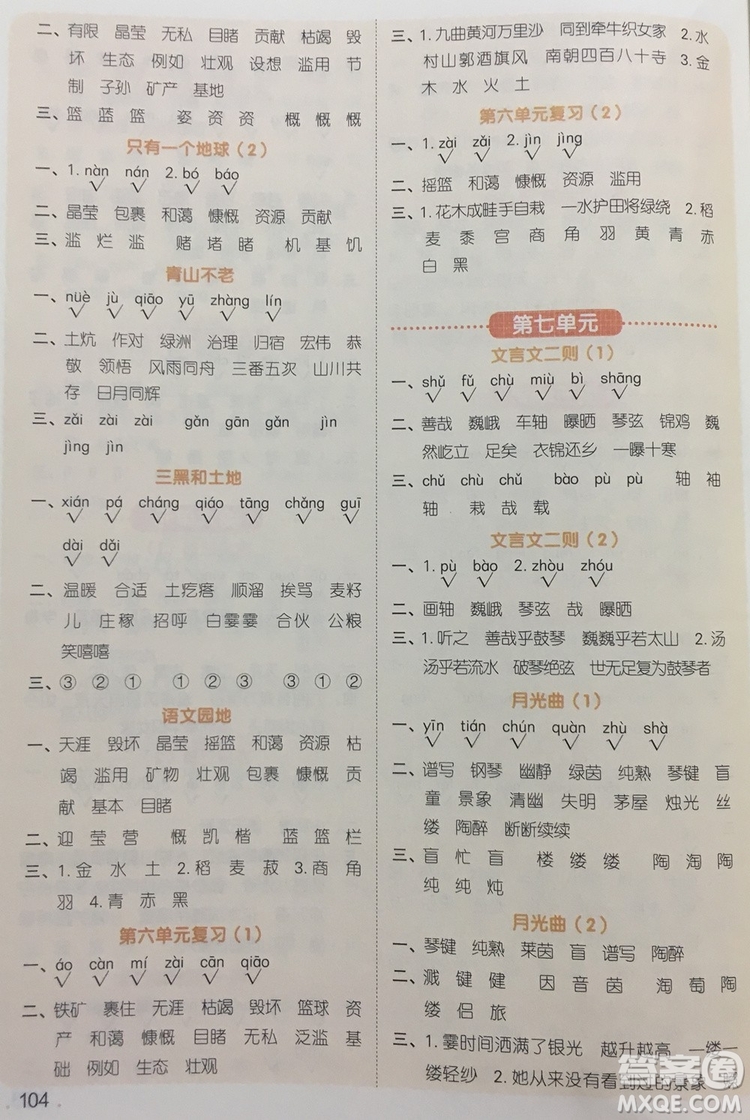 二、有限 晶莹 无私 目睹 贡献 枯竭 毁
坏 生态 例如 壮观 设想 滥用 节
制 子孙 矿产 基地
三、篮 蓝 篮 姿 资 资 慨 概 慨
只有一个地球（2）
一、1.nàn nán 2.bó báo
二、晶莹 包裹 和蔼 慷慨 资源 贡献
三、滥 烂 滥 赌 堵 睹 机 基 饥
青山不老
一、nüè jù qiāo yū zhàng lín
二、土炕 作对 绿洲 治理 归宿 宏伟 恭
敬 领悟 风雨同舟 三番五次 山川共
存 日月同辉
三、zǎi zài zài gǎn gān gǎn jìn
jìng jìn
三黑和土地
一、xián pá cháng qiáo tāng chǎng guī
dài dǎi
二、温暖 合适 土疙瘩 顺溜 挨骂 麦籽
儿 庄稼 招呼 白霎霎 合伙 公粮
笑嘻嘻
三、③ ② ① ① ② ③ ③ ② ①
语文园地
一、天涯 毁坏 晶莹 摇篮 和蔼 资源 枯
竭 滥用 矿物 壮观 包裹 慷慨 贡
献 基本 目睹
二、迎 莹 营 慨 凯 楷 蓝 篮 栏
三、1.金 水 土 2.稻 麦 菽 3.商 角
羽 4.青 赤 黑
第六单元复习（1）
一、áo càn mí zài cān qiāo
二、铁矿 裹住 无涯 枯竭 毁坏 篮球 资
产 和蔼 慷慨 目睹 无私 泛滥 基
础 例如 生态 壮观
104
三、1.九曲黄河万里沙 同到牵牛织女家 2.水
村山郭酒旗风 南朝四百八十寺 3.金
木 水 火 土
第六单元复习（2）
一、1.zài zǎi 2.jìn jìng
二、摇篮 和蔼 慷慨 资源 滥用
三、1.花木成畦手自栽 一水护田将绿绕 2.稻
麦 黍 宫 商 角 羽 黄 青 赤
白 黑
第七单元
文言文二则（1）
一、shǔ fǔ chù miù bì shāng
二、善哉 巍峨 车轴 曝晒 琴弦 锦鸡 巍
然屹立 足矣 衣锦还乡 一曝十寒
三、chǔ chù chǔ bào pù pù 轴 袖
轴 栽 哉 载
文言文二则（2）
一、1.pù bào 2.zhòu zhóu
二、画轴 巍峨 琴弦 哉 曝晒
三、1.听之 善哉乎鼓琴 巍巍乎若太山 2.汤
汤乎若流水 破琴绝弦 世无足复为鼓琴者
月光曲（1）
一、yīn tián chún quàn zhù shà
二、谱写 钢琴 幽静 绿茵 纯熟 琴键 盲
童 景象 清幽 失明 茅屋 烛光 丝
缕 陶醉 断断续续
三、盲 忙 盲 楼 缕 缕 陶 淘 陶
纯 纯 炖
月光曲（2）
一、琴键 纯熟 莱茵 盲 谱写 陶醉
二、溅 键 健 因 音 茵 淘 萄 陶
缕 侣 旅
三、1.霎时间洒满了银光 越升越高 一缕一
缕轻纱 2.她从来没有看到过的景象
答案卷
MXQE.COM